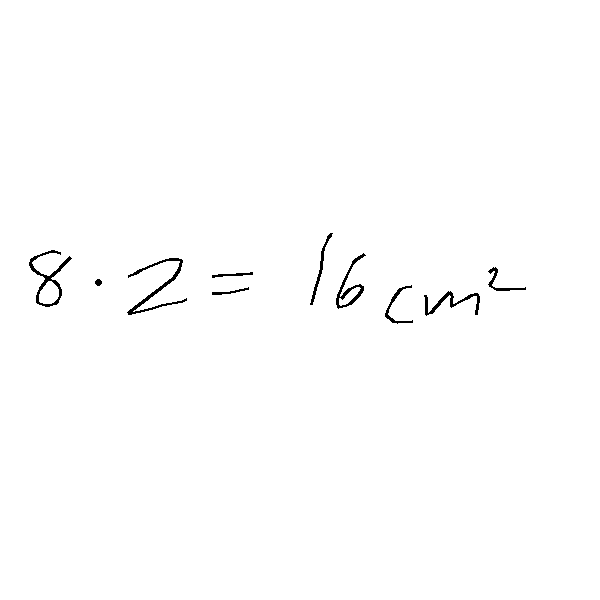 8 · 2 = 16 cm²